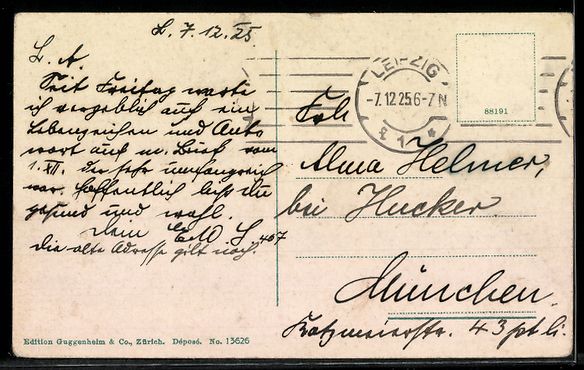 L. 7.12.25.
L. A.
Seit Freitag warte
ich vergeblich auf ein
Lebenszeichen und Ant-
wort auf m. Brief vom
1. XII. der sehr umfangreich
war. Hoffentlich bist du
gesund und wohl.
Dein
die alte Adresse gilt noch.
LEIPZIG
-7.12.25.6-7N
88191
Frl.
Alma Helmer,
bei Hucker
München.
Katzmeierstr. 43 pt li.
Edition Guggenheim & Co., Zürich. Déposé. No. 13626